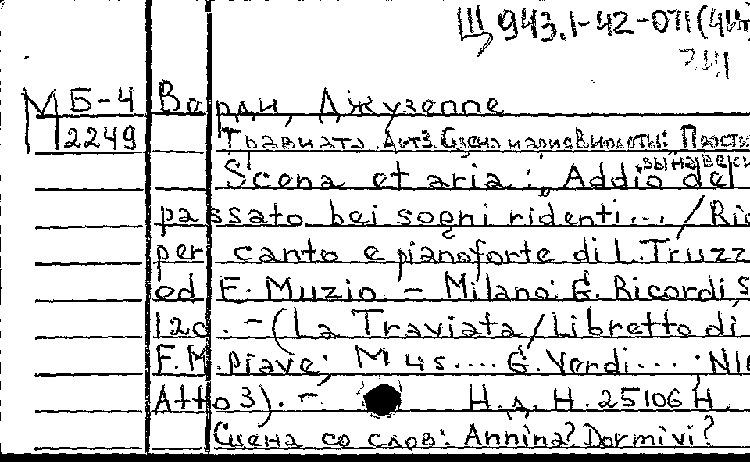 Щ 943.1-42-011(4Ит
МБ-4 Верди, Джузеппе
2249 Травиата. Акт 3. Сцена и ария Виолетты: Прости
вы навеки
Scena et aria: Addio del
passato bei sogni ridenti... /Ric
per canto e pianoforte di L. Truzz
ed E. Muzio. - Milano: G. Ricordi, S
12c. - (La Traviata /Libretto di
F.M. Piave; Mus.... G. Verdi...;
Atto 3). - Н.д. Н. 25106 Н.
Сцена со слов: Annina? Dormivi?